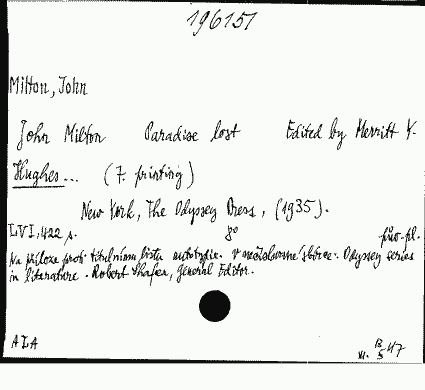 196151
Milton, John
John Milton Paradise lost Edited by Merritt Y.
Hughes... (7. printing)
New York, The Odyssey Press, (1935).
LVI, 422 s. 8° pův. pl.
Na příloze proti titulnímu listu v Odyssey series
in literature. Robert Shafer, General Editor.
ALA